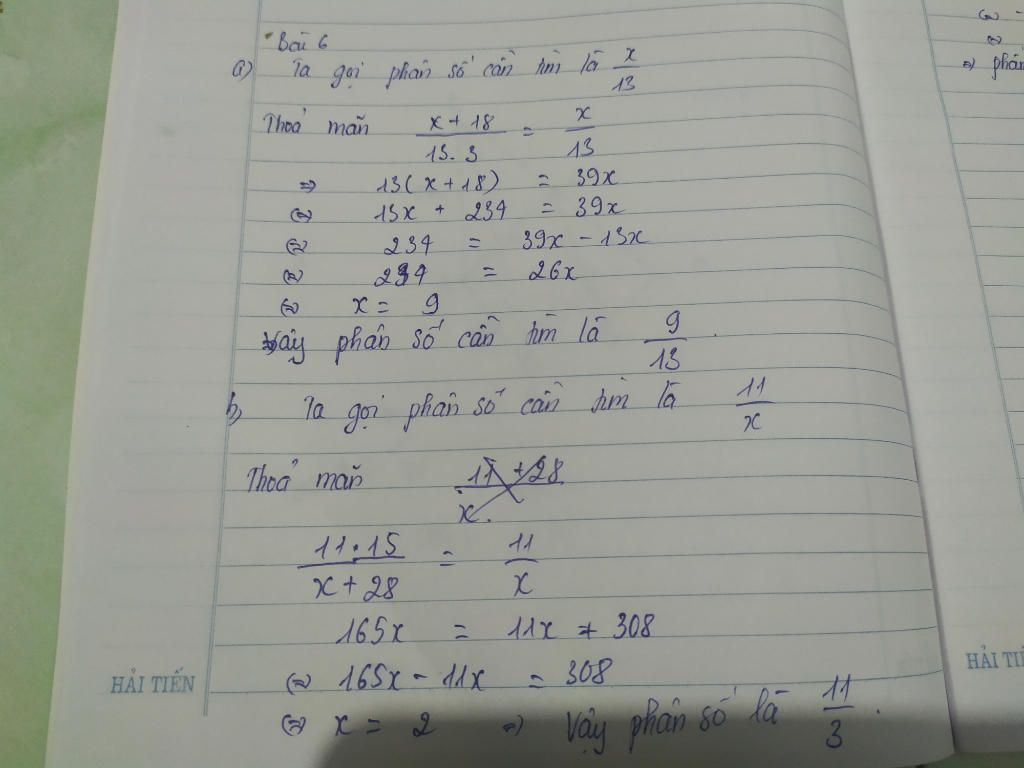 Bài 6
a) Ta gọi phân số cần tìm là x/13
Thoả mãn (x + 18)/(13.3) = x/13
⇒ 13(x + 18) = 39x
⇔ 13x + 234 = 39x
⇔ 234 = 39x - 13x
⇔ 234 = 26x
⇔ x = 9
Vậy phân số cần tìm là 9/13.
b, Ta gọi phân số cần tìm là 11/x
Thoả mãn
(11.15)/(x + 28) = 11/x
165x = 11x + 308
⇔ 165x - 11x = 308
⇔ x = 2 ⇒ Vậy phân số là 11/3.
HẢI TIẾN
⇔ -
⇔
⇒ phân
HẢI TI